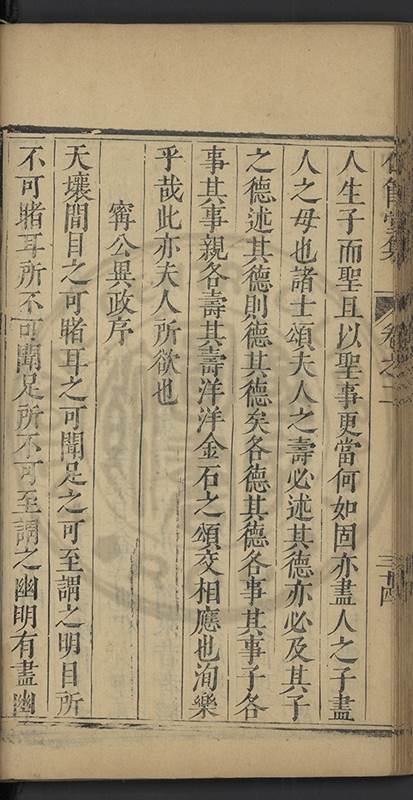 堂集 卷之二
人生子而聖且以聖事更當何如固亦盡人之子盡
人之母也諸士頌夫人之壽必述其德亦必及其子
之德述其德則德其德矣各德其德各事其事子各
事其事親各壽其壽洋洋金石之頌交相應也洵樂
乎哉此亦夫人所欲也
甯公異政序
天壤間目之可睹耳之可聞足之可至謂之明目所
不可睹耳所不可聞足所不可至謂之幽明有盡幽